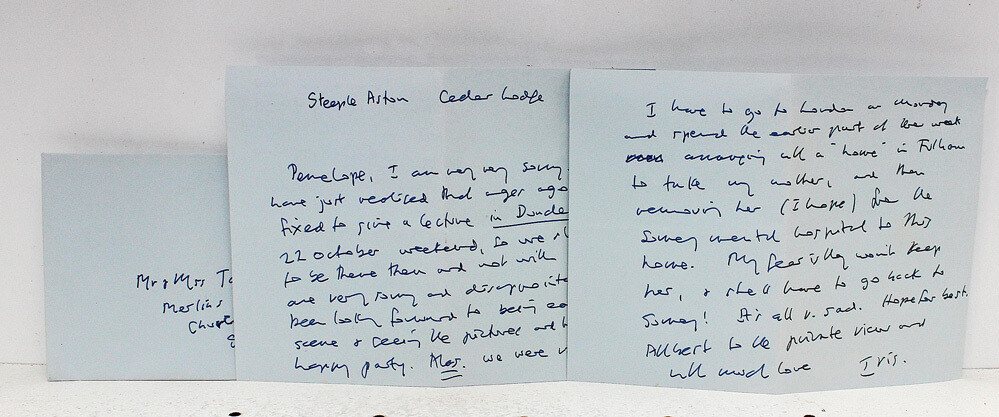 Mr & Mrs
Merlins
Steeple Aston Cedar Lodge
Penelope, I am very very sorry
have just realised that ages ago
fixed to give a lecture in Dunde
22 October weekend, so we
to be there then and not with
are very sorry and disappointe
been looking forward to being
scene & seeing the pictures and
happy party. Alas. we were
I have to go to London on Monday
and spend the earlier part of the week
arranging with a "home" in Fulham
to take my mother, and then
removing her (I hope) from the
Surrey mental hospital to this
home. My fear is they won't keep
her, & she'll have to go back to
Surrey! It's all v. sad. Hope for best.
All best to the private view and
with much love Iris.